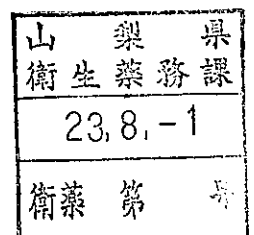 山梨県
衛生薬務課
23.8.-1
衛薬第 号